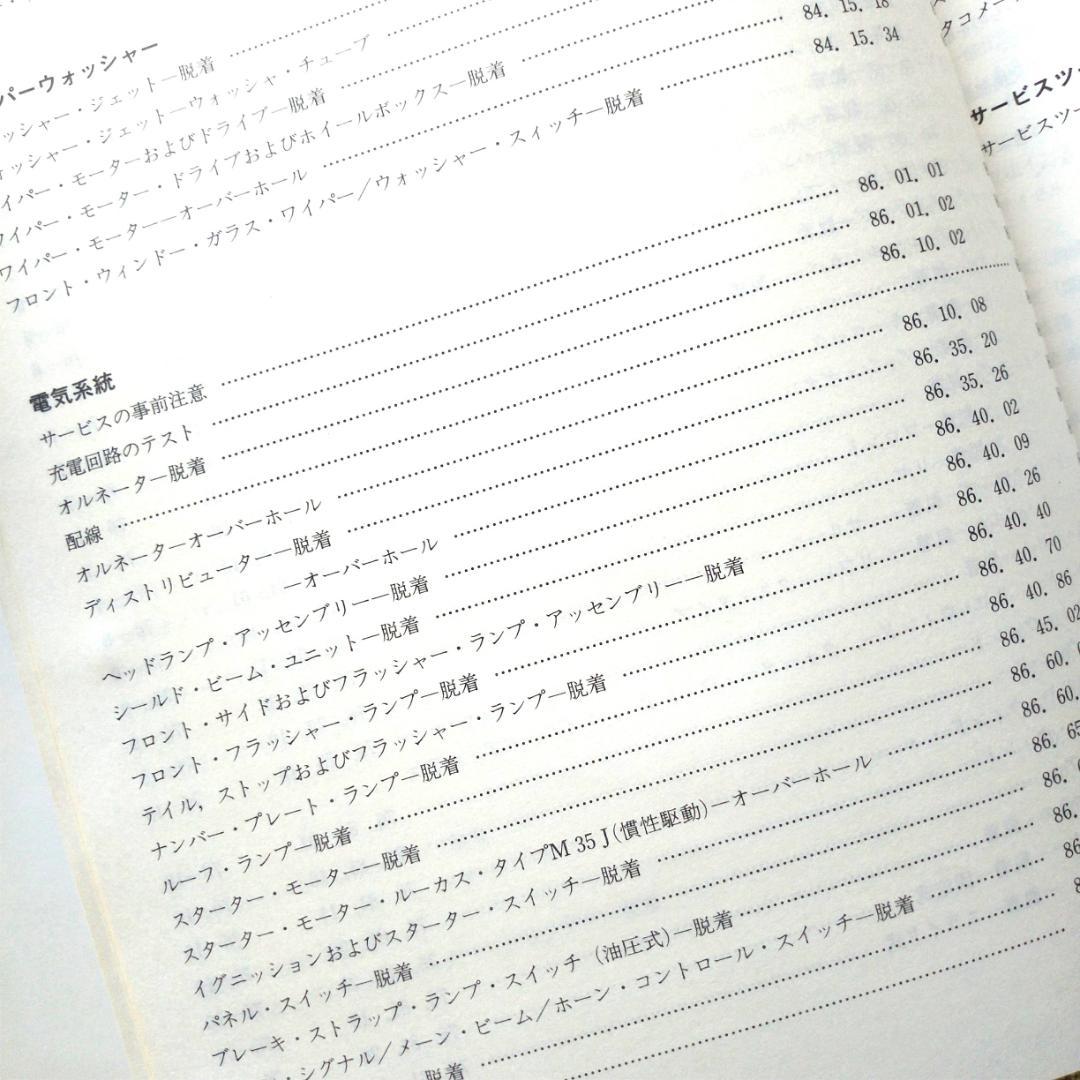 パーウォッシャー
ッシャー・ジェット—脱着
ォッシャー・ジェット—ウォッシャ・チューブ
イパー・モーターおよびドライブ—脱着
ワイパー・モーター・ドライブおよびホイールボックス—脱着
ワイパー・モーター—オーバーホール 84. 15. 18
フロント・ウィンドー・ガラス・ワイパー/ウォッシャー・スィッチ—脱着 84. 15. 34
電気系統
サービスの事前注意 86. 01. 01
充電回路のテスト 86. 01. 02
オルネーター脱着 86. 10. 02
配線
オルネーターオーバーホール 86. 10. 08
ディストリビューター—脱着 86. 35. 20
—オーバーホール 86. 35. 26
ヘッドランプ・アッセンブリー—脱着 86. 40. 02
シールド・ビーム・ユニット—脱着 86. 40. 09
フロント・サイドおよびフラッシャー・ランプ・アッセンブリー—脱着 86. 40. 26
フロント・フラッシャー・ランプ—脱着 86. 40. 40
テイル, ストップおよびフラッシャー・ランプ—脱着 86. 40. 70
ナンバー・プレート・ランプ—脱着 86. 40. 86
ルーフ・ランプ—脱着 86. 45. 02
スターター・モーター—脱着 86. 60.
スターター・モーター・ルーカス・タイプM 35 J(慣性駆動)—オーバーホール 86. 60.
イグニッションおよびスターター・スイッチ—脱着 86. 65
パネル・スイッチ—脱着 86.
ブレーキ・ストラップ・ランプ・スイッチ(油圧式)—脱着 86.
・シグナル/メーン・ビーム/ホーン・コントロール・スイッチ—脱着 86
脱着
タコメー
サービスツ
サービスツー